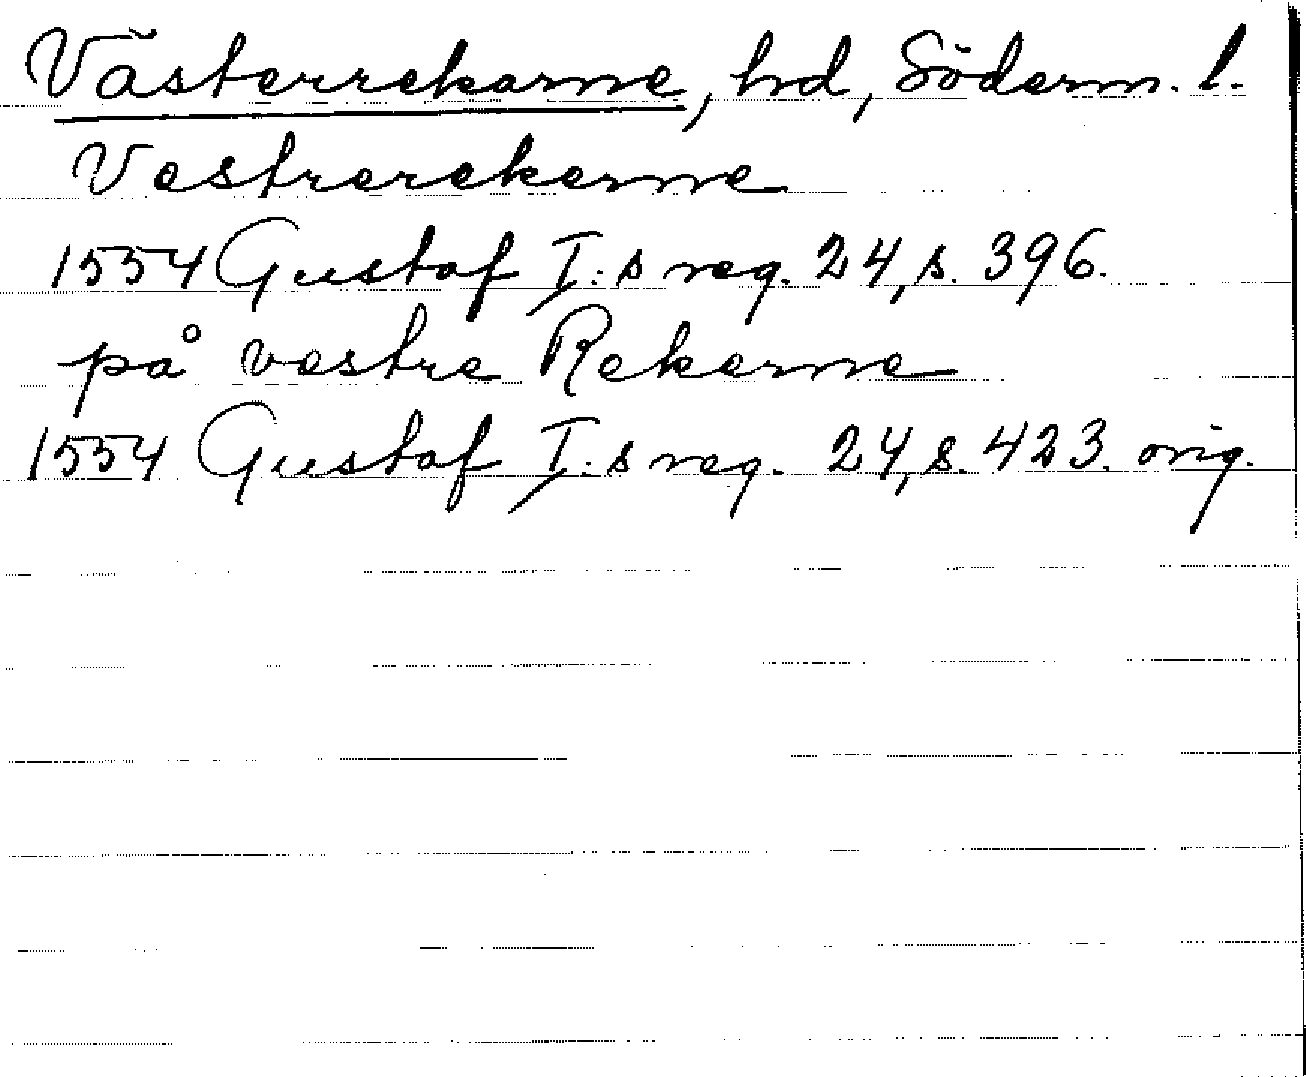 Västerrekarne, hd, Söderm. l.
Vestrerekerne
1554 Gustaf I:s reg. 24, s. 396.
på vestre Rekerne
1554 Gustaf I:s reg. 24, s. 423. orig.